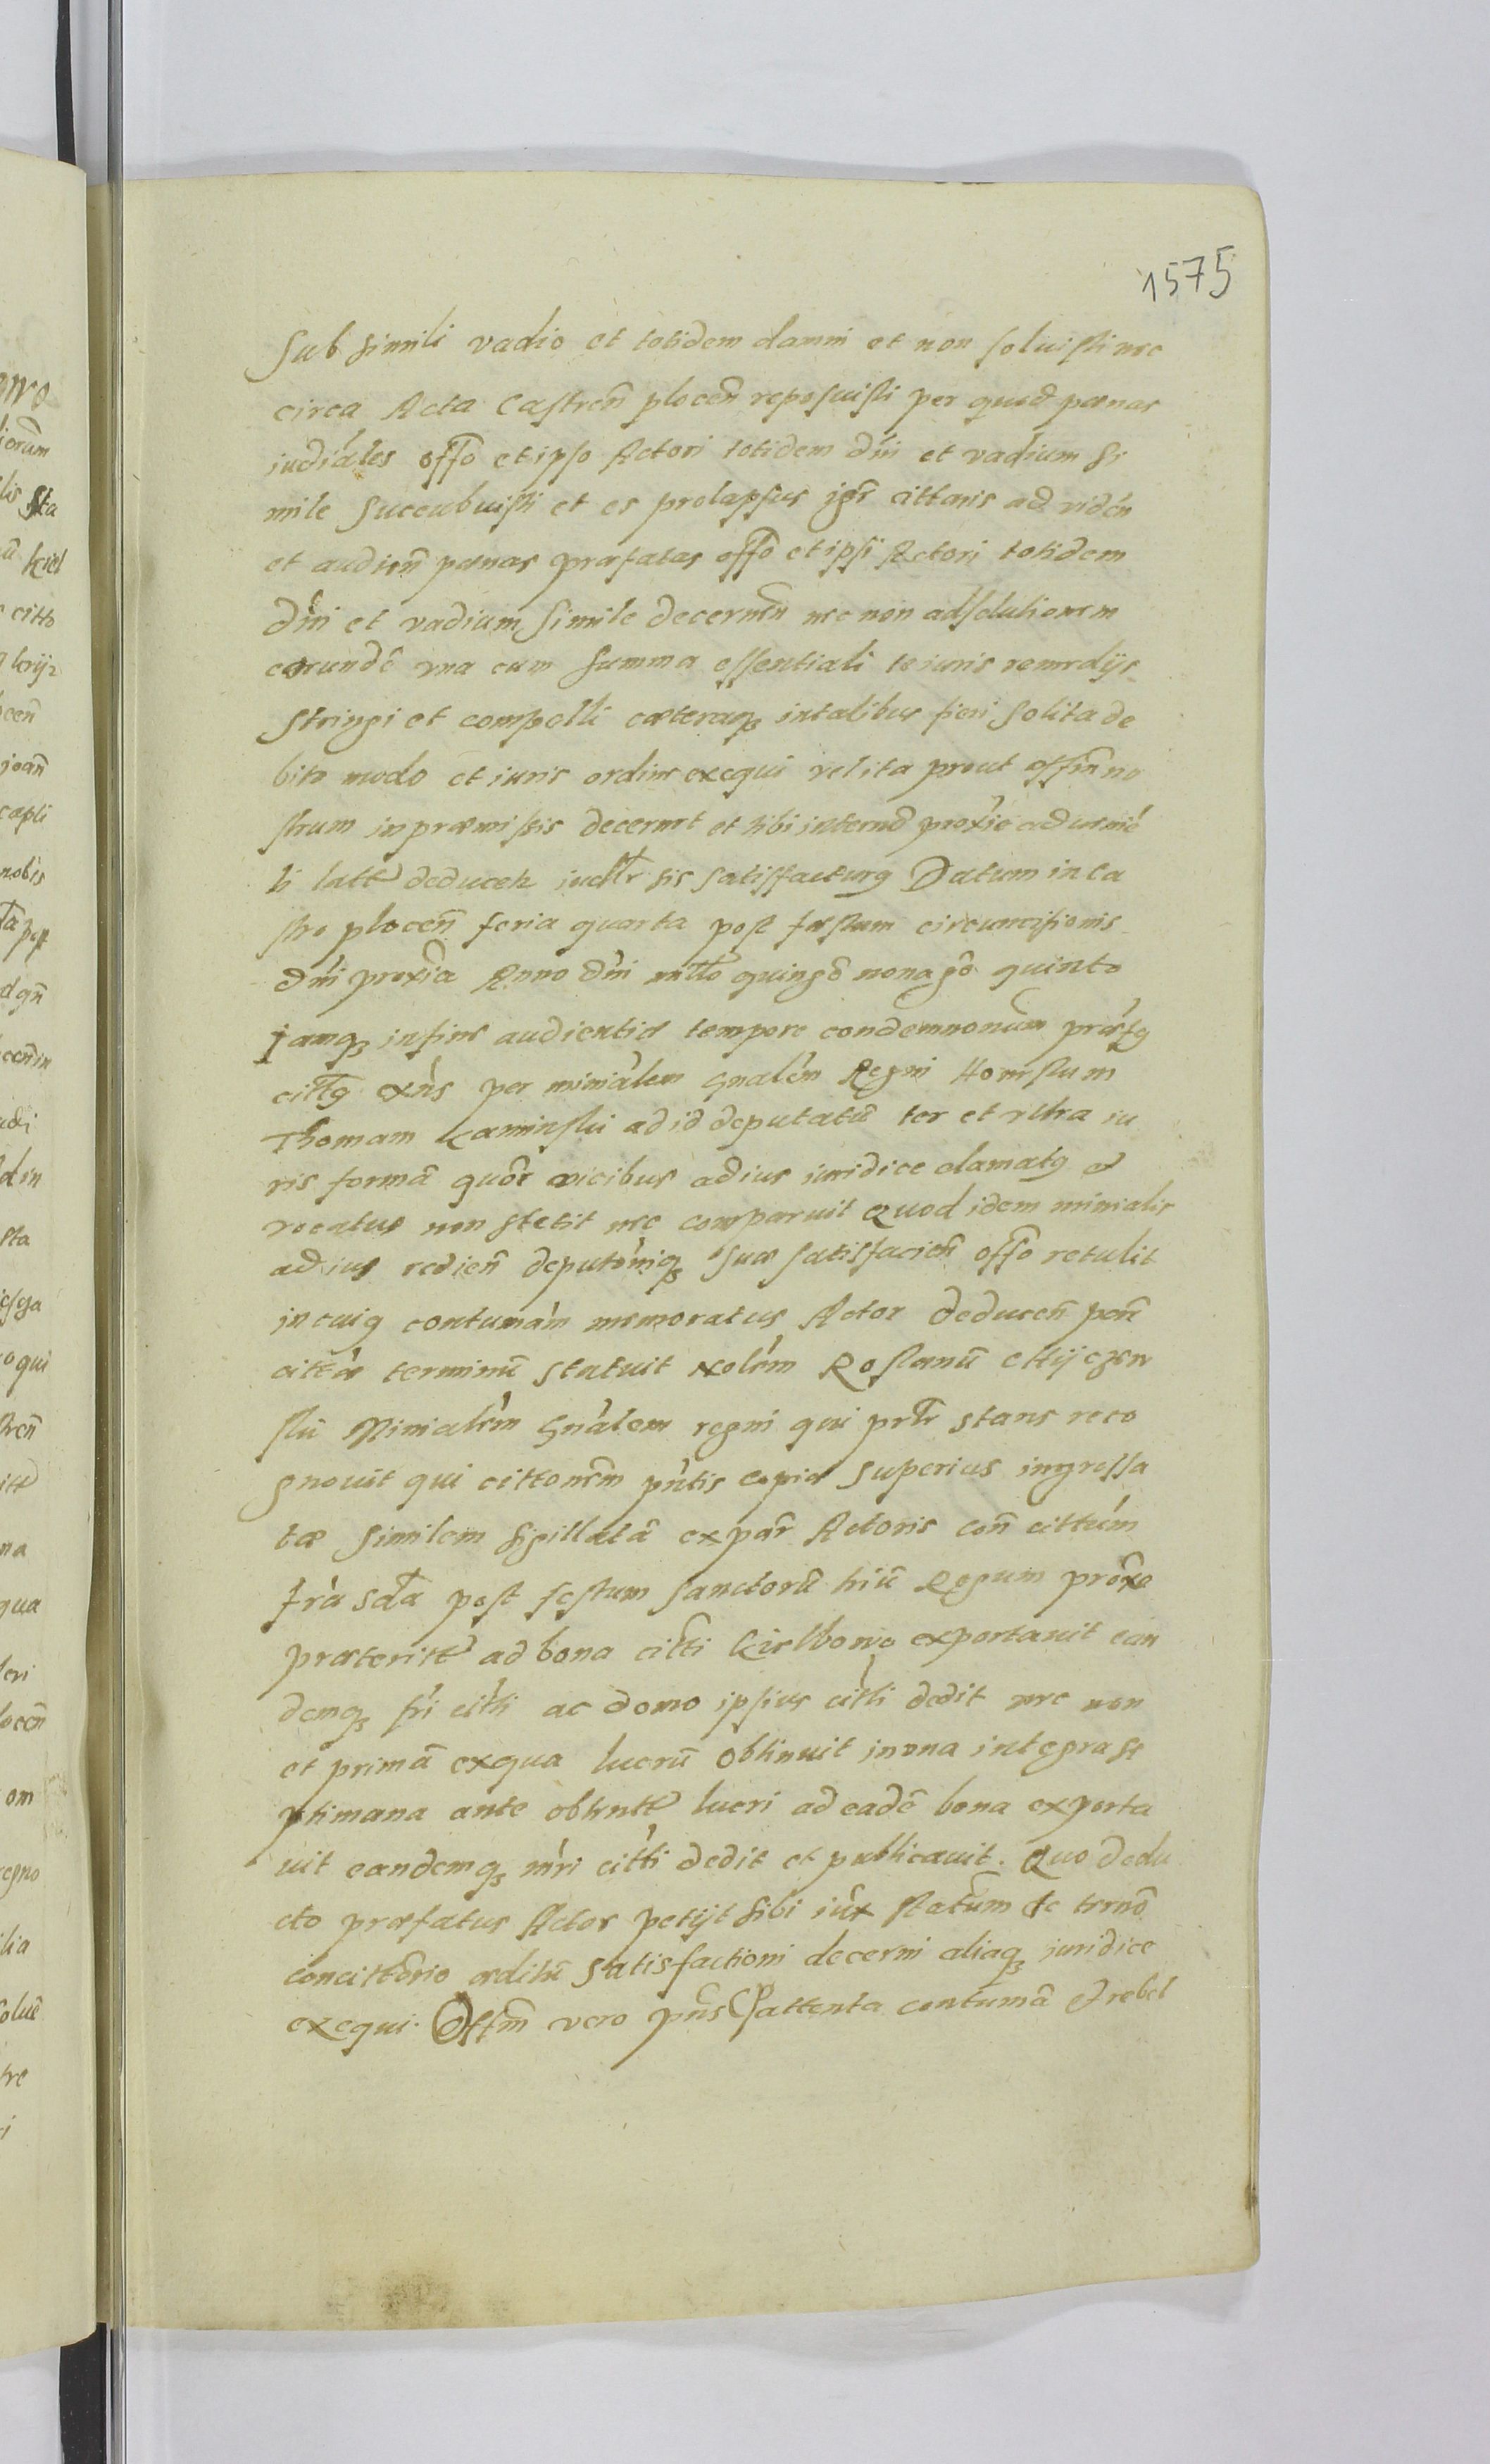 1575
Sub simili vadio et totidem damni et non soluisti nec
circa Acta Castreñ plocen̄ reposuisti per quod pœnas
iudiáles offo et ipso Actori totidem dńi et vadium si
mile succubuisti et es prolapsus igr̃ cittaris ad vidén
et audien̄ pœnas præfatas offo et ipsi Actori totidem
dńi et vadium simile decernen̄ nec non adsolutionem
eorundē vna cum summa essentiali te iuris remedijs
stringi et compelli cæteraqȝ in talibus fieri solita de
bito modo et iuris ordine exequi velita prout offm̄ no
strum in præmissis decernet et tibi in termō proxīe aduenié
ti latt deducetr sis satisfacturꝰ Datum in Ca
stro plocen̄ feria quarta post fæstum circumcisionis
Dńi proxīa Anno Dńi millo quingō nonagō quinto
Iamqȝ in fine audientiæ tempore condemnonum præfꝰ
cittꝰ exńs per miniálem Gnalém Regni Honestum
Thomam Kaminski ad id deputatū ter et vltra iu
ris formā quōr vicibus ad ius iuridice clamatꝰ et
vocatus non stetit nec comparuit Quod idem minialis
ad ius redien̄ deputōniqȝ suæ satisfacień offo retulit
in cuiꝰ contumám memoratus Actor deducen̄ pen̄
cittǽ terminū statuit Nolém Roslanū
skī Miniálém Gnálem regni qui prtr stans reco
gnouit qui cittonem pńtis copiæ superius ingrossa
tæ similem sigillatā ex par̄ Actoris con̄ cittúm
fria sda post festum sanctorū triū Regum prōxe
præteritt ad bona citti Kielbowo exportauit ean
demqȝ fri citti ac domo ipsius citti dedit nec non
et primā ex qua lucrū obtinuit in vna integra se
ptimana ante obtentt lucri ad eadē bona exporta
uit eandemqȝ mri citti dedit et publicauit. Quo dedu
cto præfatus Actor petijt sibi iux statum de termō
concittōrio ad satisfactioni decerni aliaqȝ iuridice
exequi. Offm̄ vero pńs attenta contumā et rebel